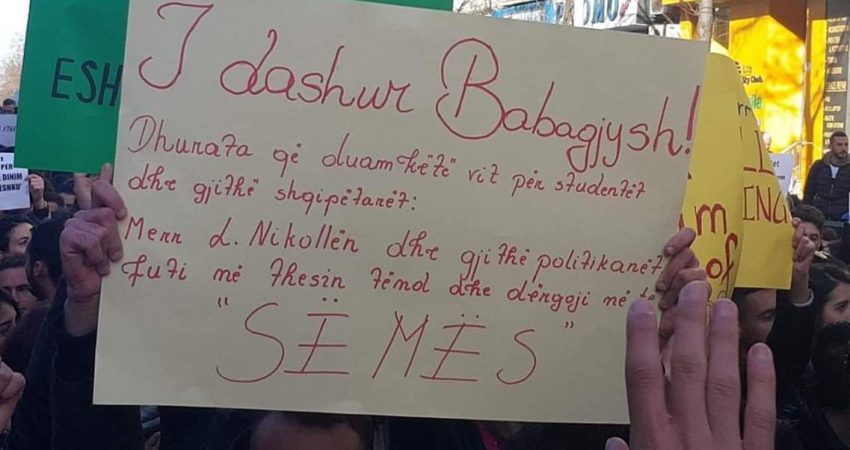 I dashur Babagjysh!
Dhurata që duam këtë vit për studentët
dhe gjithë shqipëtarët:
Merr L. Nikollën dhe gjithë politikanët
futi në thesin tënd dhe dërgoji në
"SË MËS"
ESH
ING
of